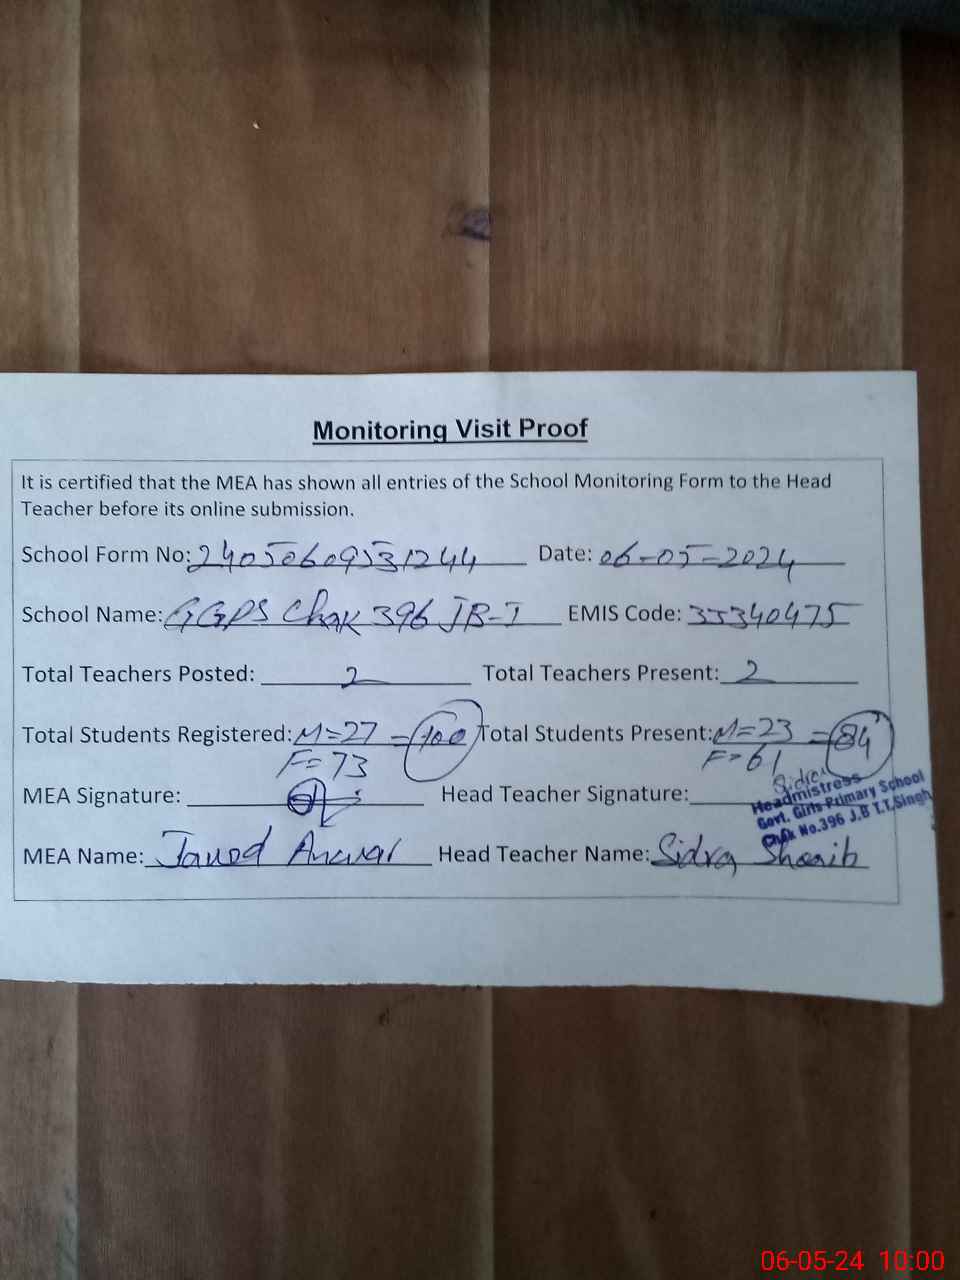 Monitoring Visit Proof
It is certified that the MEA has shown all entries of the School Monitoring Form to the Head
Teacher before its online submission.
School Form No: 24050609531244 Date: 06-05-2024
School Name: GGPS Chak 396 JB-I EMIS Code: 33340475
Total Teachers Posted: 2 Total Teachers Present: 2
Total Students Registered: M=27 = 100 Total Students Present: M=23 = 84
F=73 F=61
MEA Signature: Head Teacher Signature: Sidra
Headmistress
Govt. Girls Primary School
Chak No.396 J.B T.T.Singh
MEA Name: Javed Anwar Head Teacher Name: Sidra
06-05-24 10:00